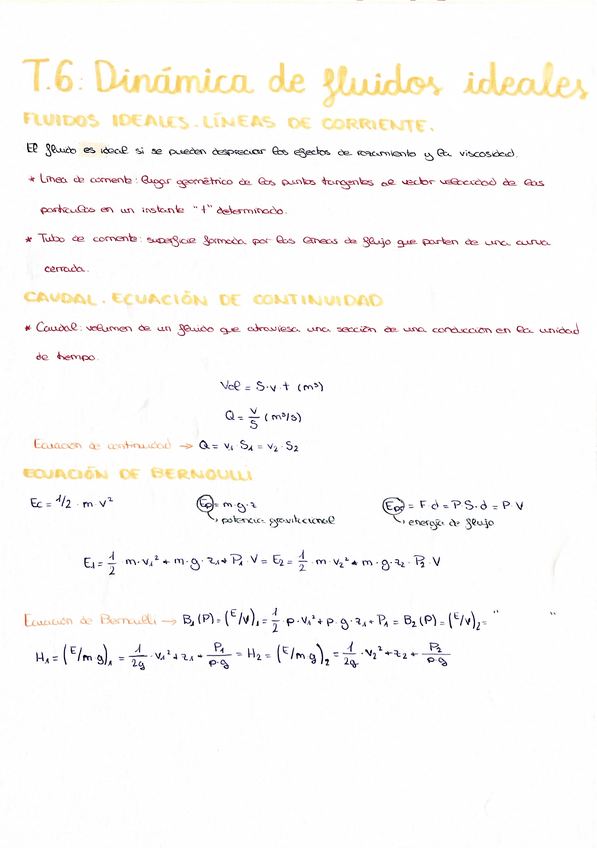 T.6: Dinámica de fluidos ideales
FLUIDOS IDEALES. LÍNEAS DE CORRIENTE.
El fluido es ideal si se pueden despreciar los efectos de rozamiento y la viscosidad.
* Línea de corriente: lugar geométrico de los puntos tangentes al vector velocidad de las
partículas en un instante "t" determinado.
* Tubo de corriente: superficie formada por las líneas de flujo que parten de una curva
cerrada.
CAUDAL. ECUACIÓN DE CONTINUIDAD
* Caudal: volumen de un fluido que atraviesa una sección de una conducción en la unidad
de tiempo.
Vol = S·v·t (m³)
Q = V/S (m³/s)
Ecuación de continuidad → Q = v₁·S₁ = v₂·S₂
ECUACIÓN DE BERNOULLI
Ec = 1/2 · m · v²    Ep = m·g·z    Epr = F·d = P S·d = P V
↳ potencia gravitacional    ↳ energía de flujo
E₁ = 1/2 m·v₁² + m·g·z₁ + P₁·V = E₂ = 1/2 · m·v₂² + m·g·z₂ · P₂·V
Ecuación de Bernoulli → B₁(P) = (E/V)₁ = 1/2 · ρ·v₁² + ρ·g·z₁ + P₁ = B₂(P) = (E/V)₂ = " "
H₁ = (E/m g)₁ = 1/2g · v₁² + z₁ + P₁/ρ·g = H₂ = (E/m g)₂ = 1/2g · v₂² + z₂ + P₂/ρ g